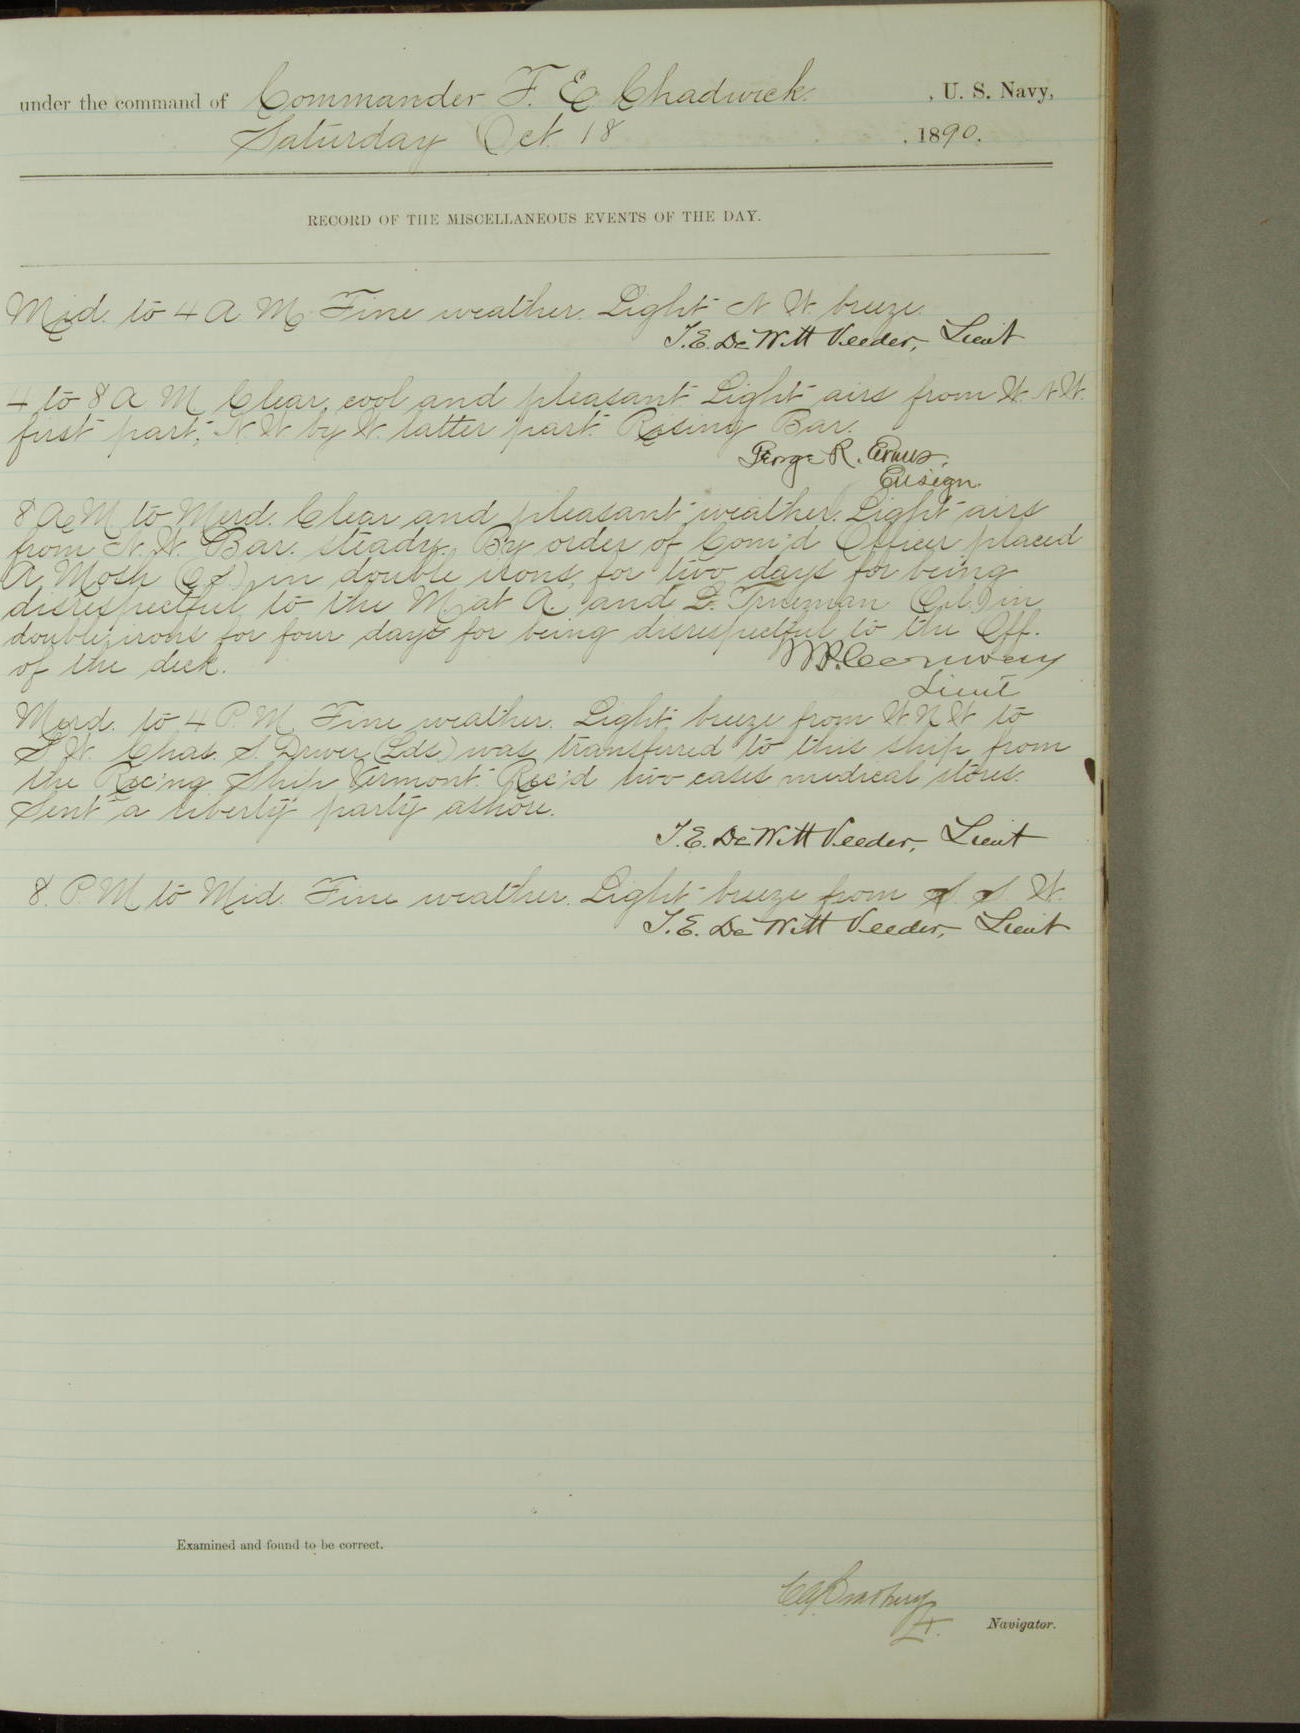 under the command of Commander F. E. Chadwick. , U. S. Navy,
Saturday Oct. 18 , 1890.
RECORD OF THE MISCELLANEOUS EVENTS OF THE DAY.
Mid. to 4 A. M. Fine weather. Light N. W. breeze.
T. E. DeWitt Veeder, Lieut
4 to 8 A. M. Clear, cool and pleasant. Light airs from W. N. W.
first part, N. W. by W. latter part. Rising Bar.
George R.
Ensign.
8 A M to Merd. Clear and pleasant weather. Light airs
from N. W. Bar. steady. By order of Com'd Officer placed
A. Mosh in double irons, for two days for being
disrespectful to the M at A. and L. Trueman in
double irons for four days for being disrespectful to the Off.
of the deck.
W P. Conway
Lieut
Merd. to 4 P. M. Fine weather. Light breeze from W N W to
S W. Chas. S. Driver (Lds.) was transferred to this ship from
the Rec'ng Ship Vermont. Rec'd two cases medical stores.
Sent a liberty party ashore.
T. E. DeWitt Veeder, Lieut
8. P. M to Mid. Fine weather. Light breeze from S. S. W.
T. E. DeWitt Veeder, Lieut
Examined and found to be correct.
Lt.
Navigator.